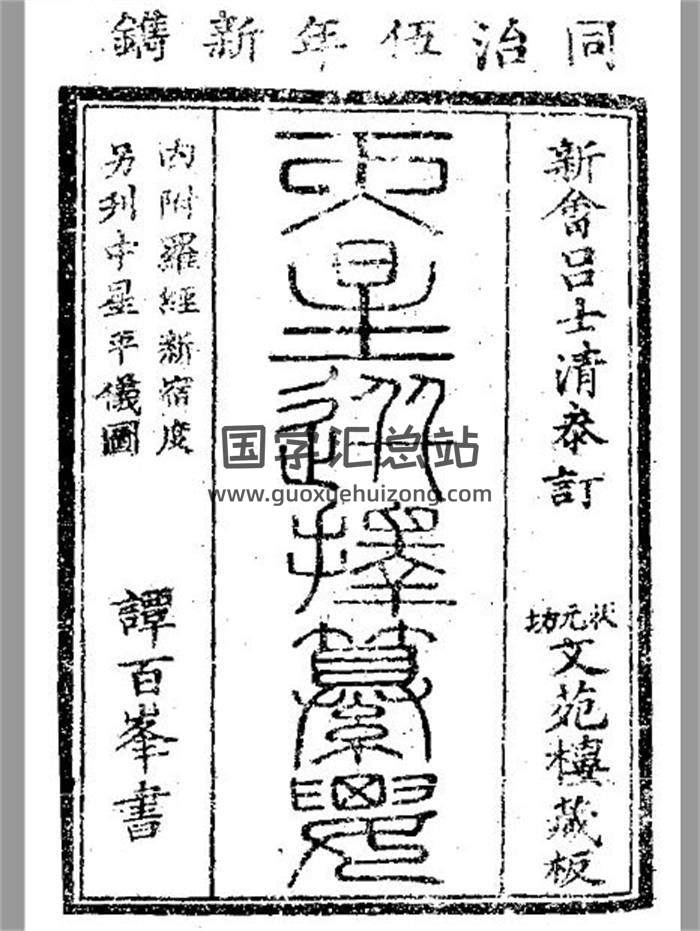 同治伍年新鐫
新會呂士清叅訂
状元坊
文苑樓藏板
天星選擇纂要
內附羅經新宿度
另刊中星平儀圖
譚百峯書
国学汇总站
www.guoxuehuizong.com